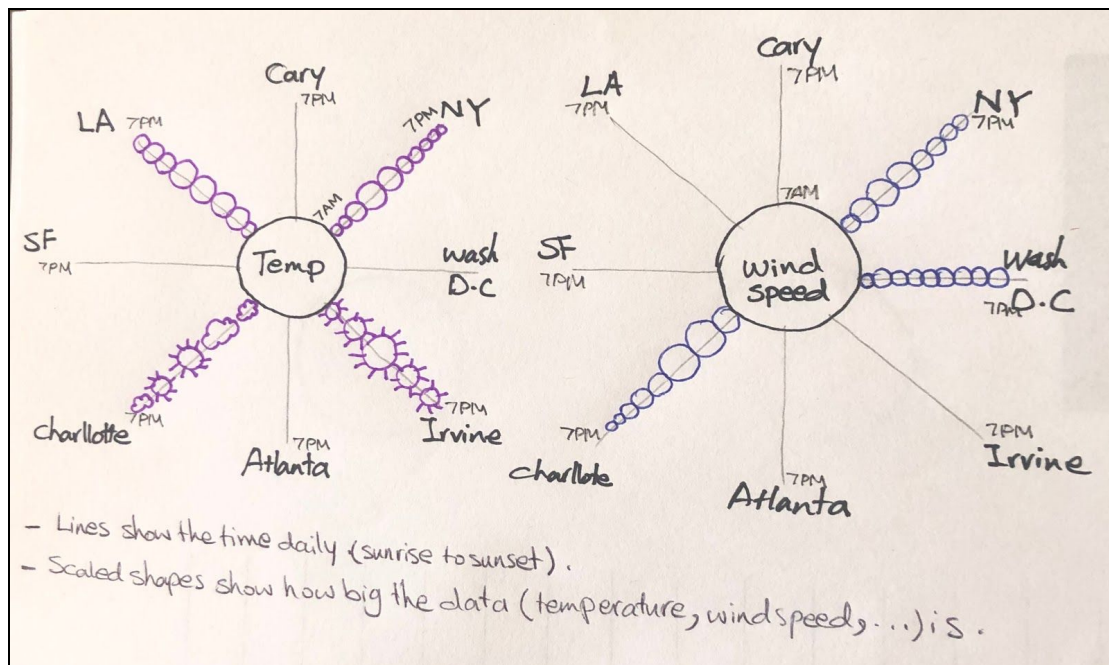 Cary
7PM
LA 7PM
7PM NY
7AM
SF
7PM
Temp
wash
D.C
charllotte
7PM
7PM
Irvine
7PM
Atlanta
Cary
7PM
LA
7PM
NY
7PM
7AM
SF
7PM
wind
speed
wash
D.C
7AM
7PM
charllote
7PM
Irvine
7PM
Atlanta
- Lines show the time daily (sunrise to sunset).
- Scaled shapes show how big the data (temperature, windspeed, ...) is.